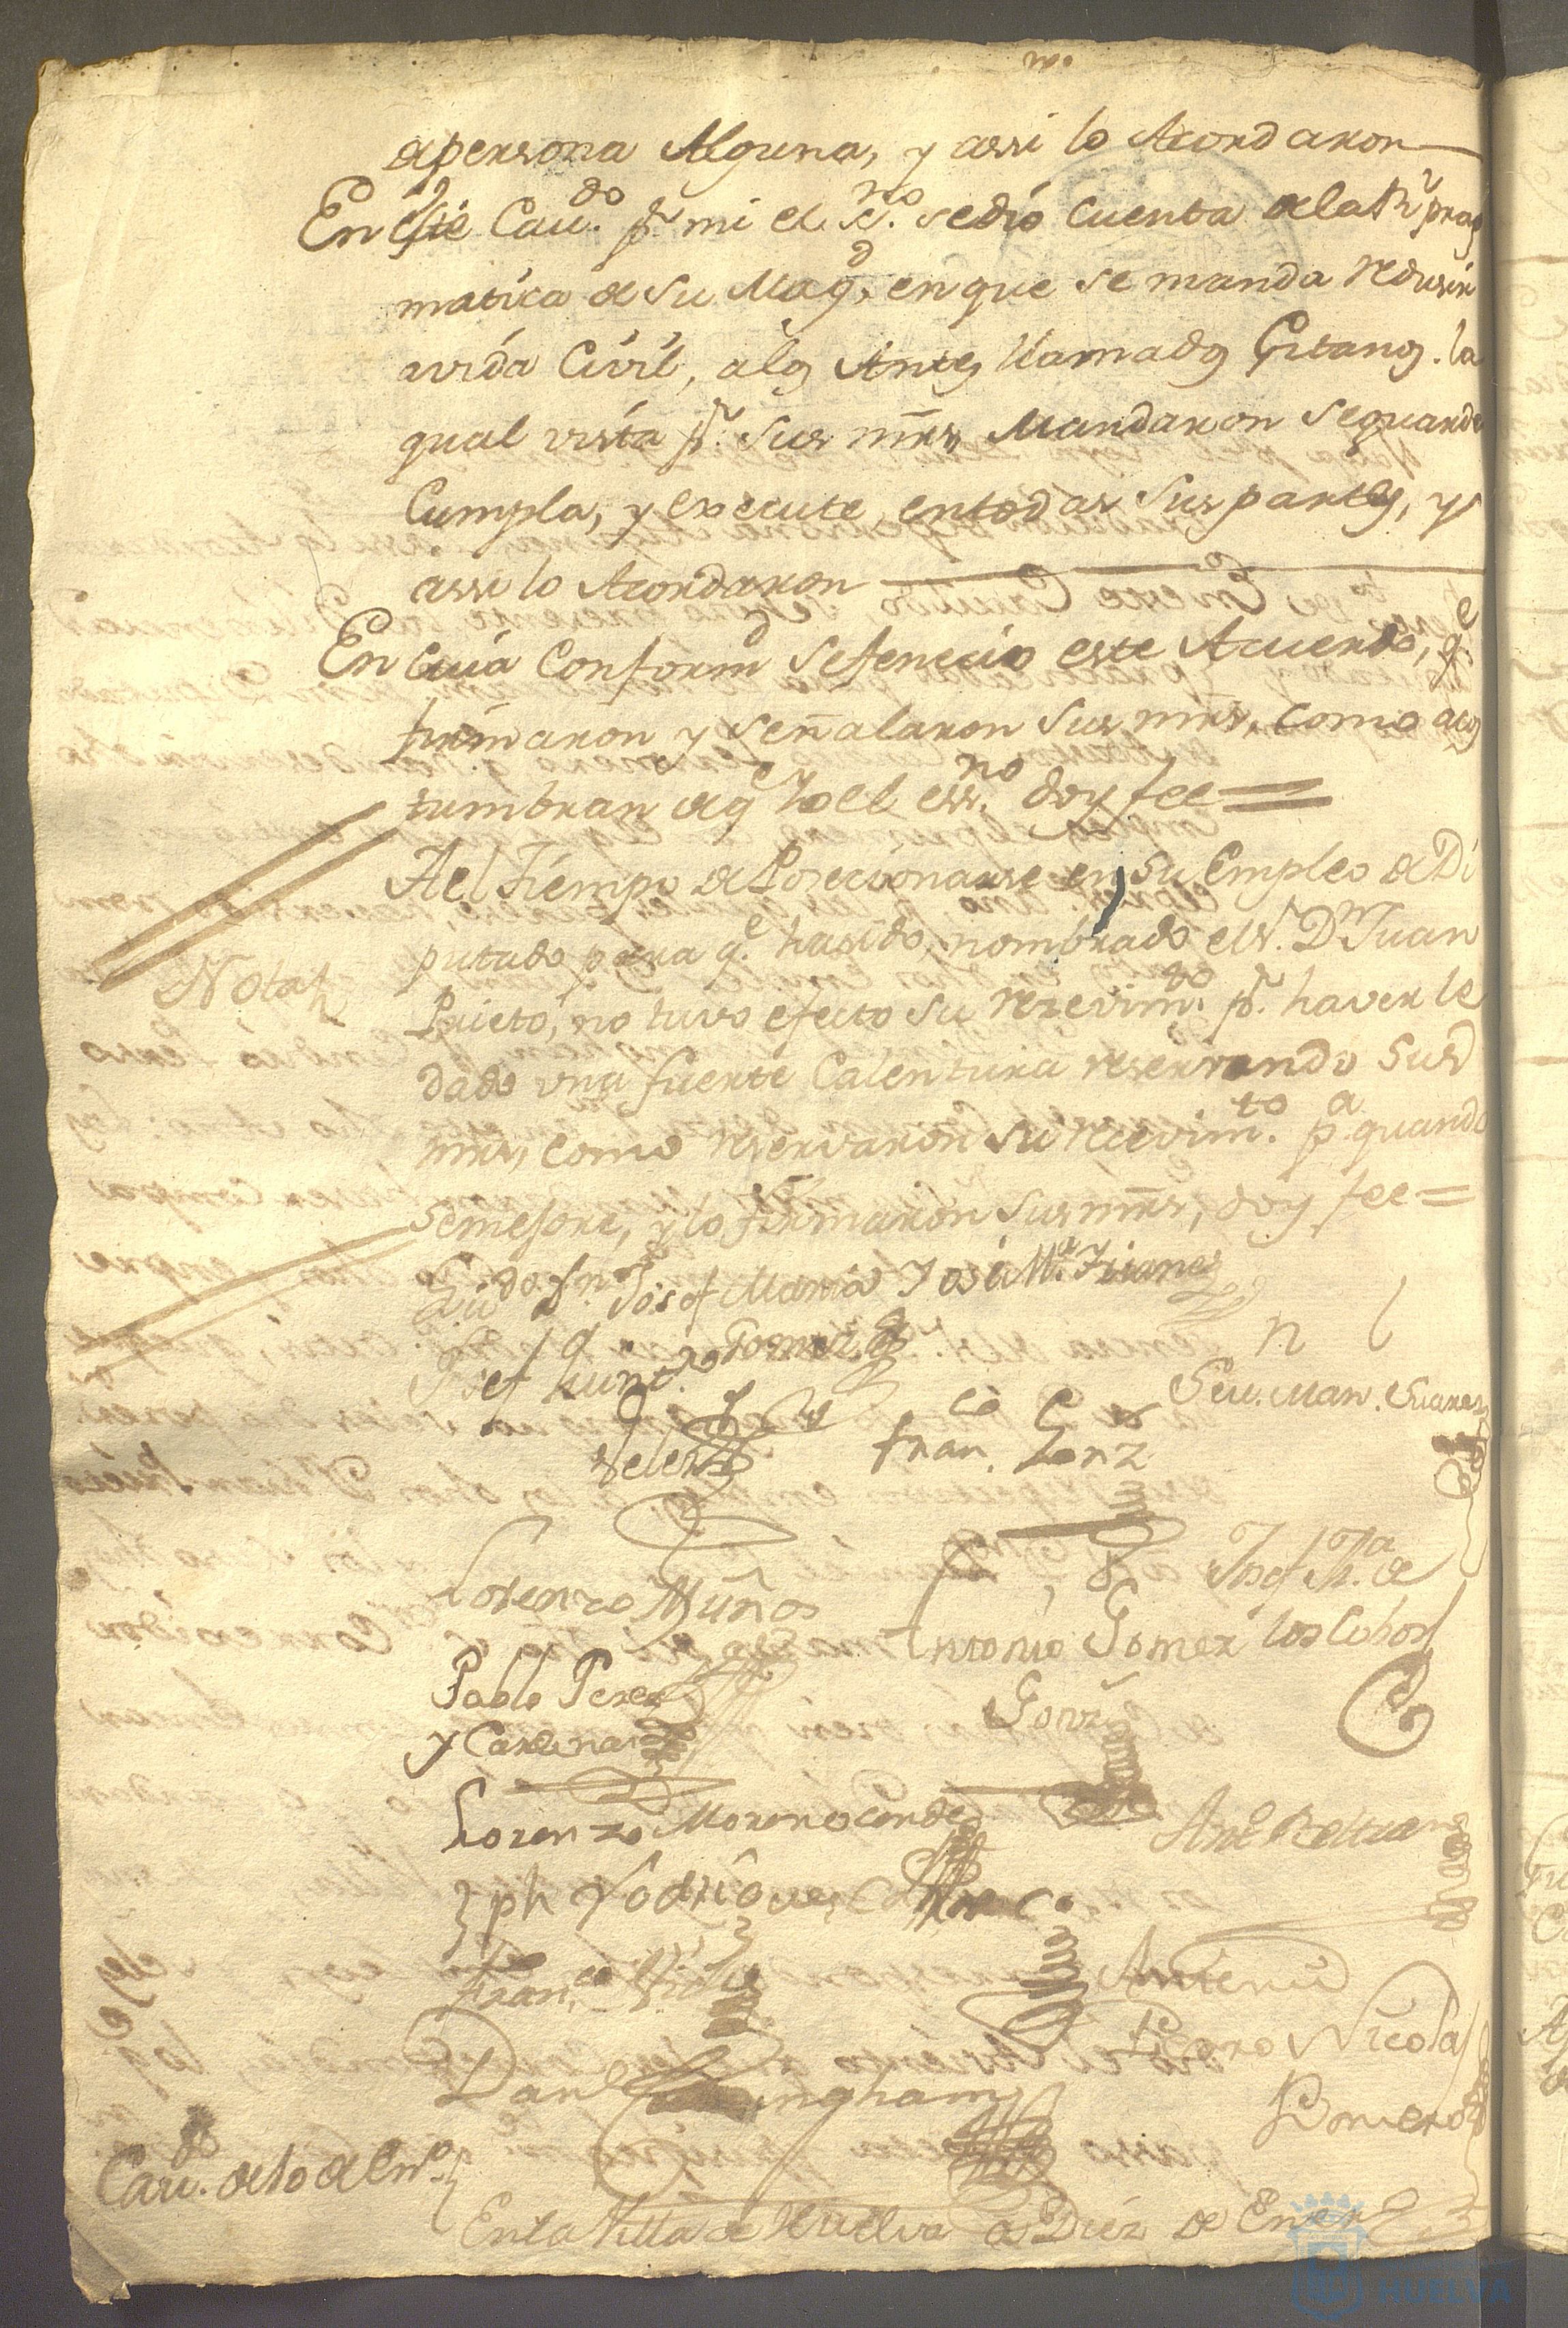 de persona Alguna, y assi lo Acordaron
En este Cau.do p.r mi el ss.no se dio cuenta de la R.l prag
matica de su Mag.d, en que se manda redusir
a vida Civil, a los Antes llamados Gitanos. la
qual vista p.r sus mrs Mandaron se guarde
Cumpla, y execute, en todas sus partes, y
assi lo Acordaron
En cuia Conform.d se fenecio este Acuerdo, q.e
firmaron y señalaron sus mrs, como acos
tumbran de q.e Yo el ess.no doy fee =
Notas
Ael Tiempo de Posecionarse en su Empleo de Di
putado para q.e ha sido, nombrado el s.r D.n Juan
Prieto, no tuvo efecto su rezevim.to p.r haverle
dado una fuerte Calentura reservando sus
mrs, como reservaron su recevim.to p.a quando
se mejore, y lo firmaron sus mrs, doy fee =
Liz.do D.n Josef Maria
José M.a Fianes
Gomez
Velez
Seu. Man. Suarez
Fran.co Gonz
Lorenzo Muños
Josef M.a de
los Cobos
Antonio Gomez
Gonz
Pablo Perez
y Cardenas
Lorenzo Moreno Conde
Ant.o Beltran
Jph Rodrigues
Fran.co
Pedro Nicolas
Romero
Cau.do de 10 de En.ro
En la Villa de Huelva a Diez de Enero
HUELVA